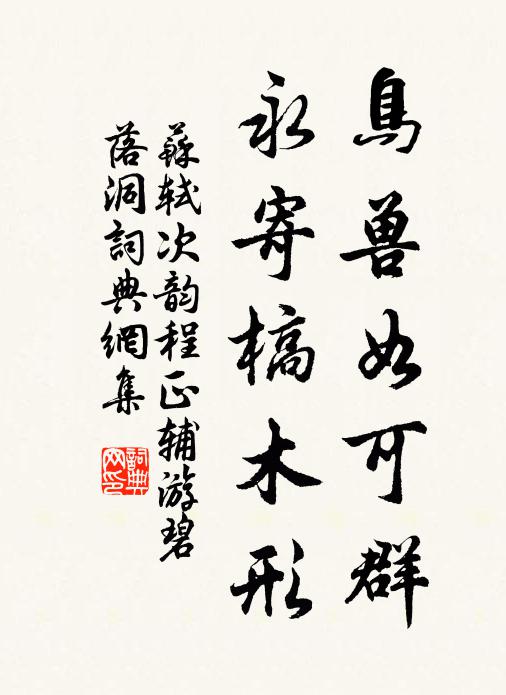 鳥兽如可群
永寄槁木形
蘇轼次韵程正辅游碧
落洞詞典網集
詞典
网印